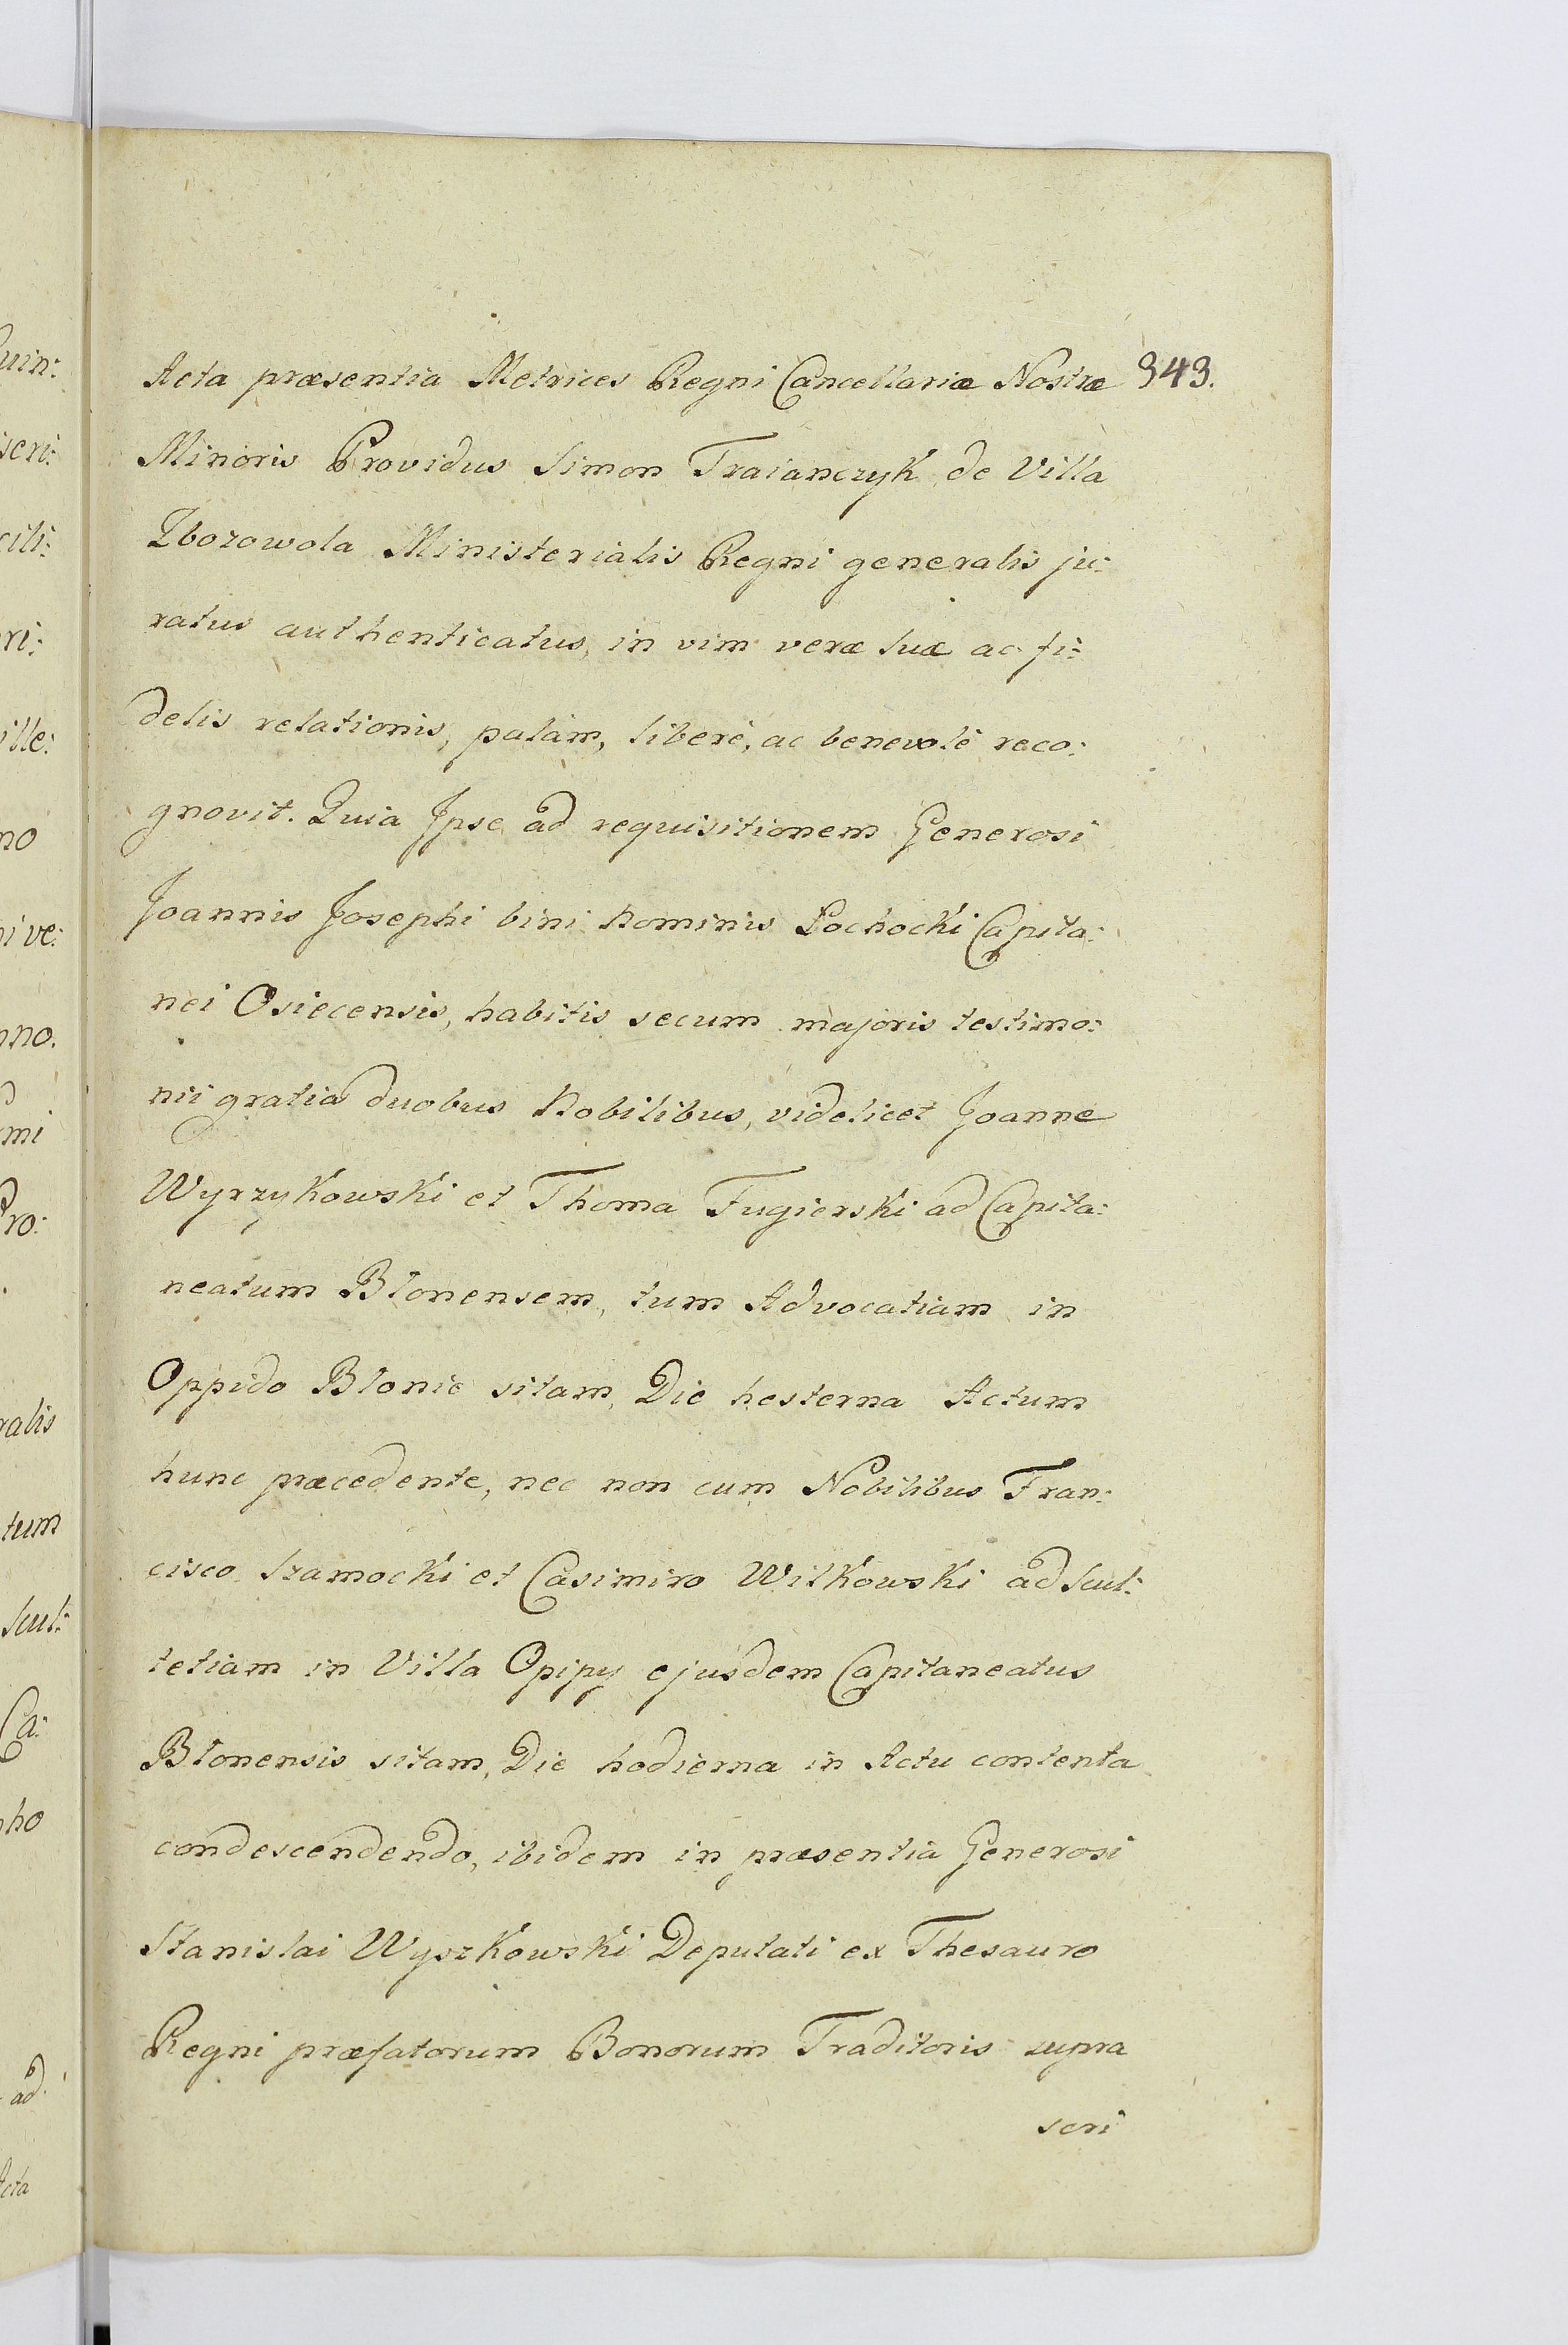 Acta præsentia Metrices Regni Cancellariæ Nostræ 343.
Minoris Providus Simon Traianczyk de Villa
Zborowola Ministerialis Regni generalis ju:
ratus authenticatus, in vim veræ suæ ac fi:
delis relationis, palàm, liberè, ac benevolè reco:
gnovit. Quia Ipse ad requisitionem Generosi
Joannis Josephi bini Nominis Lochocki Capita:
nei Osiecensis, habitis secum majoris testimo:
nii gratia duobus Nobilibus, videlicet Joanne
Wyrzykowski et Thoma Fugierski ad Capita:
neatum Blonensem, tum Advocatiam in
Oppido Blonie sitam, Die hesterna Actum
hunc præcedente, nec non cum Nobilibus Fran:
cisco Szamocki et Casimiro Witkowski ad Scul:
tetiam in Villa Opipy ejusdem Capitaneatus
Blonensis sitam, Die hodierna in Actu contenta
condescendendo, ibidem in præsentia Generosi
Stanislai Wyszkowski Deputati ex Thesauro
Regni præfatorum Bonorum Traditoris supra
scri
uin:
scri:
cili:
ri:
ille:
no
ni ve:
nno.
mi
Pro:
ralis
tum
Scul:
Ca:
pho
ad
Acta